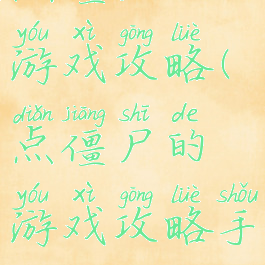 yóu xì gōng lüè
游戏攻略(
diǎn jiāng shī de
点僵尸的
yóu xì gōng lüè shǒu
游戏攻略手